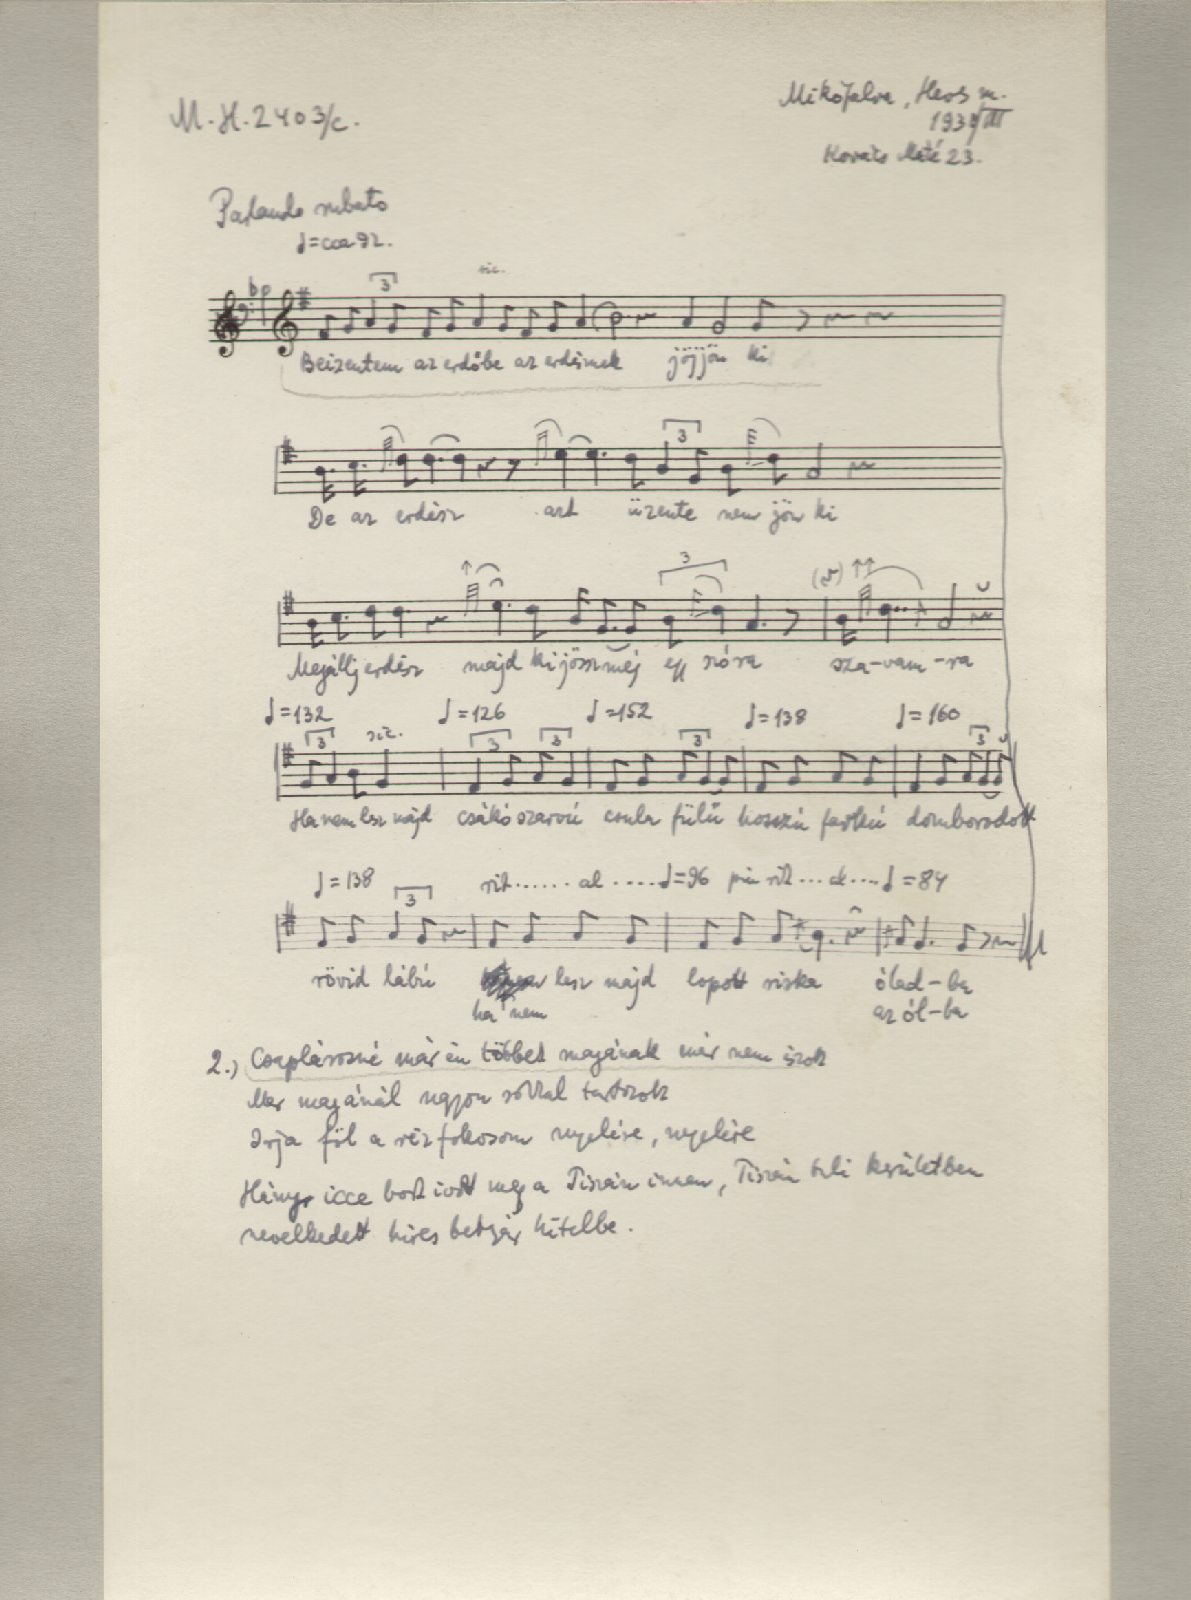 M.H. 2403/c.
Mikófalva, Heves m.
193 /III
Kovács Máté 23.
Parlando rubato
♩=cca 92.
3 sic.
Beizentem az erdőbe az erdésnek jöjjön ki
3
De az erdész azt üzente nem jön ki
3
Megállj erdész majd kijössz még egy szóra sza-vam-ra
♩=132 ♩=126 ♩=152 ♩=138 ♩=160
3 sic. 3 3 3 3
Hanem lesz majd csákó szarvú csula fülű hosszú farkú domborodott
♩=138 rit...... al .....♩=96 più rit....al....♩=84
3
rövid lábú lesz majd lopott riska ólad-ba
ha nem az ól-ba
2.) Csaplárosné már én többet magának már nem iszok
Mer magánál ugyon sokkal tartozok
Irja föl a réz fokosom nyelére, nyelére
Hány icce bort ivott meg a Tiszán innen, Tiszán tuli kerületben
nevelkedett hires betyár hitelbe.